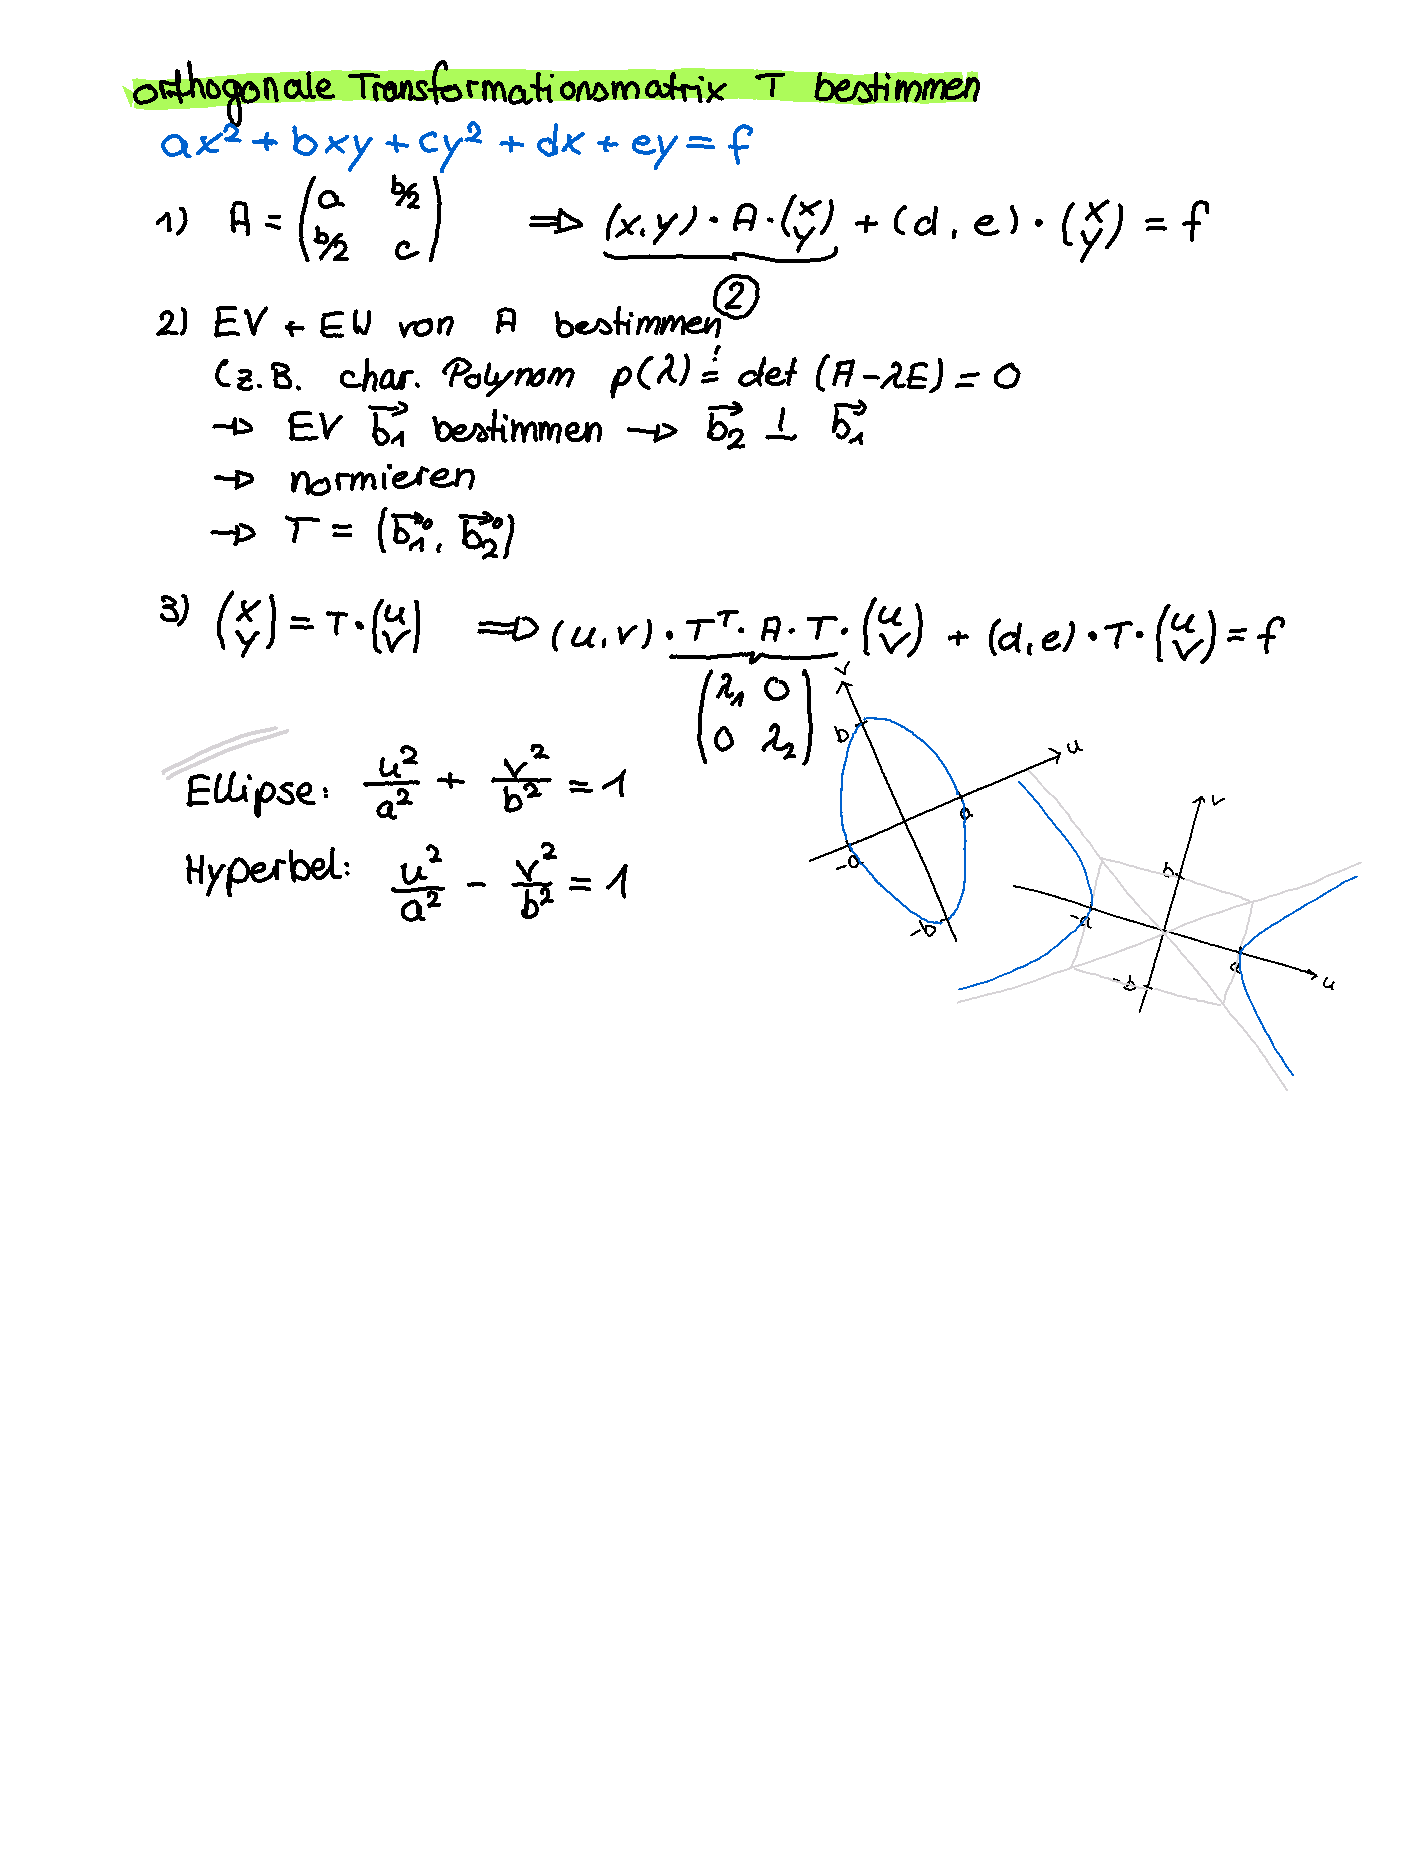 orthogonale Transformationsmatrix T bestimmen
ax² + bxy + cy² + dx + ey = f
1) A = (a b/2 / b/2 c) ⇒ (x,y) · A · (x / y) + (d, e) · (x / y) = f
②
2) EV + EW von A bestimmen
(z.B. char. Polynom p(λ) =! det (A-λE) = 0
→ EV b₁ bestimmen → b₂ ⊥ b₁
→ normieren
→ T = (b₁⁰, b₂⁰)
3) (x / y) = T · (u / v) ⇒ (u,v) · Tᵀ · A · T · (u / v) + (d,e) · T · (u / v) = f
(λ₁ 0 / 0 λ₂)
Ellipse: u²/a² + v²/b² = 1
Hyperbel: u²/a² - v²/b² = 1
v
b
u
a
-a
-b
v
b
-a
a
-b
u